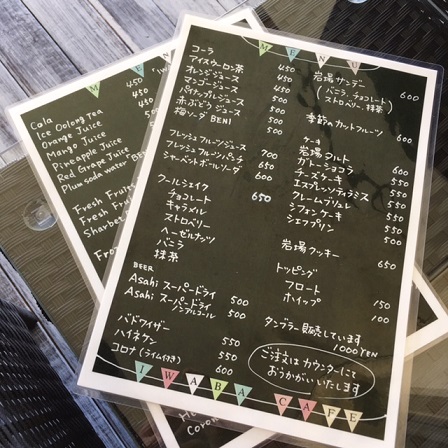 MENU
コーラ 450
アイスウーロン茶 450
オレンジジュース 450
マンゴージュース 450
パイナップルジュース 500
赤ぶどうジュース 500
梅ソーダ BENI 500
フレッシュフルーツジュース 700
フレッシュフルーツパンチ 650
シャーベットボールソーダ 600
クールシェイク 650
チョコレート
キャラメル
ストロベリー
ヘーゼルナッツ
バニラ
抹茶
BEER
Asahi スーパードライ 500
Asahi スーパードライ 500
ノンアルコール
バドワイザー 550
ハイネケン 550
コロナ(ライム付き) 600
岩場サンデー 600
(バニラ、チョコレート
ストロベリー、抹茶)
季節のカットフルーツ 600
ケーキ
岩場タルト 600
ガトーショコラ 550
チーズケーキ 550
エスプレッソティラミス 550
クレームブリュレ 550
シフォンケーキ 550
シェフプリン 550
岩場クッキー 650
トッピング
フロート 150
ホイップ 100
タンブラー販売しています
1000YEN
ご注文はカウンターにて
おうかがいいたします
IWABA CAFE
MEN
Cola
Ice Oolong Tea
Orange Juice
Mango Juice
Pineapple Juice
Red Grape Juice
Plum soda water BEN
Fresh Fruits
Fresh Fru
Sherbet
Froz